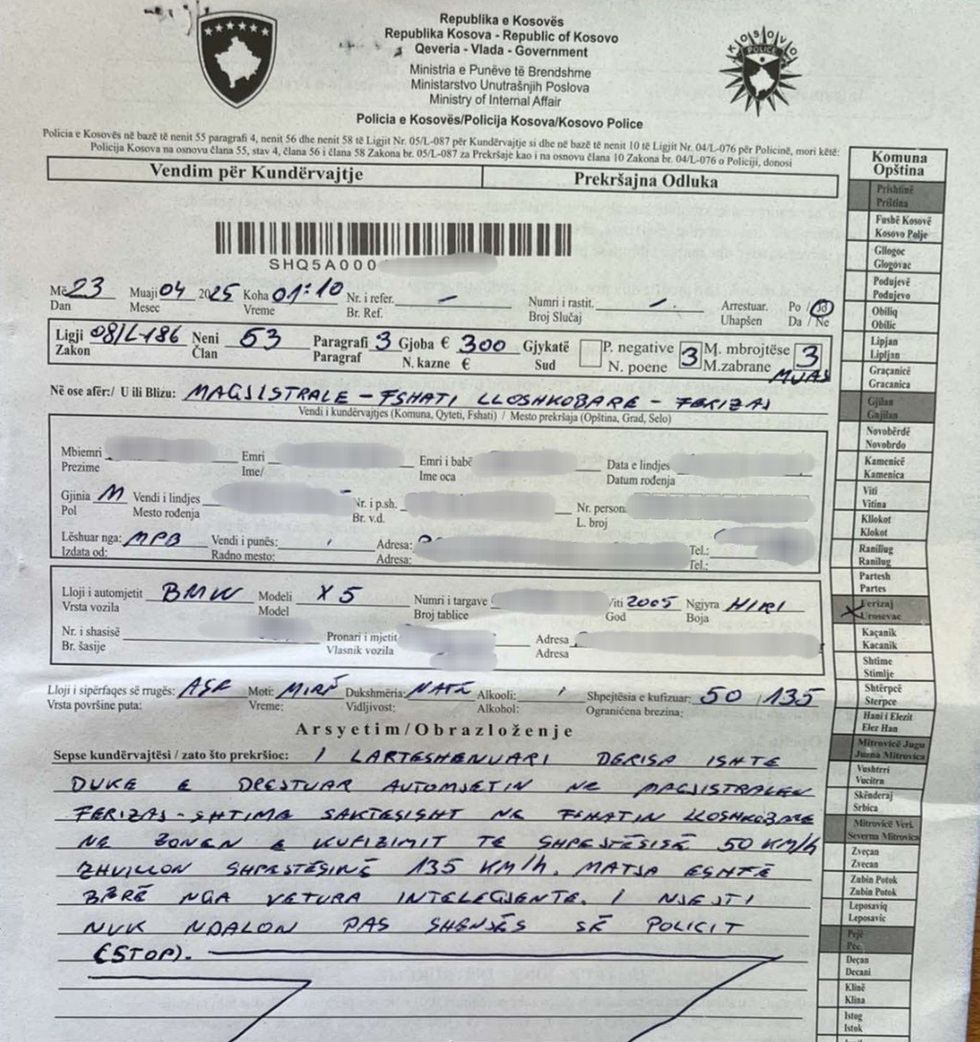 Republika e Kosovës
Republika Kosova - Republic of Kosovo
Qeveria - Vlada - Government
Ministria e Punëve të Brendshme
Ministarstvo Unutrašnjih Poslova
Ministry of Internal Affair
Policia e Kosovës/Policija Kosova/Kosovo Police
KOSOVO
POLICE
Policia e Kosovës në bazë të nenit 55 paragrafi 4, nenit 56 dhe nenit 58 të Ligjit Nr. 05/L-087 për Kundërvajtje si dhe në bazë të nenit 10 të Ligjit Nr. 04/L-076 për Policinë, mori këtë:
Policija Kosova na osnovu člana 55, stav 4, člana 56 i člana 58 Zakona br. 05/L-087 za Prekršaje kao i na osnovu člana 10 Zakona br. 04/L-076 o Policiji, donosi
Vendim për Kundërvajtje Prekršajna Odluka
SHQ5A000
Më 23 Muaji 04 2025 Koha 01:10 Nr. i refer. - Numri i rastit. - Arrestuar. Po / Jo
Dan Mesec Vreme Br. Ref. Broj Slučaj Uhapšen Da / Ne
Ligji 08/L-186 Neni 53 Paragrafi 3 Gjoba € 300 Gjykatë P. negative 3 M. mbrojtëse 3
Zakon Član Paragraf N. kazne € Sud N. poene M.zabrane MUAJ
Në ose afër:/ U ili Blizu: MAGJISTRALE - FSHATI LLOSHKOBARE - FERIZAJ
Vendi i kundërvajtjes (Komuna, Qyteti, Fshati) / Mesto prekršaja (Opština, Grad, Selo)
Mbiemri Emri Emri i babë Data e lindjes
Prezime Ime/ Ime oca Datum rođenja
Gjinia M Vendi i lindjes Nr. i p.sh. Nr. person
Pol Mesto rođenja Br. v.d. L. broj
Lëshuar nga: MPB Vendi i punës: Adresa: Tel.:
Izdata od: Radno mesto: Adresa: Tel.:
Lloji i automjetit BMW Modeli X5 Numri i targave Viti 2005 Ngjyra HIRI
Vrsta vozila Model Broj tablice God Boja
Nr. i shasisë Pronari i mjetit Adresa
Br. šasije Vlasnik vozila Adresa
Lloji i sipërfaqes së rrugës: ASF Moti: MIRË Dukshmëria: NATË Alkooli: Shpejtësia e kufizuar: 50 / 135
Vrsta površine puta: Vreme: Vidljivost: Alkohol: Ograničena brezina:
Arsyetim/Obrazloženje
Sepse kundërvajtësi / zato što prekršioc: I LARTESHENUARI DERISA ISHTE
DUKE E DREJTUAR AUTOMJETIN NE MAGJISTRALEN
FERIZAJ-SHTIME SAKTESISHT NE FSHATIN LLOSHKOBARE
NE ZONEN E KUFIZIMIT TE SHPEJTËSISË 50 KM/h
ZHVILLON SHPEJTËSINË 135 KM/h. MATJA ESHTË
BËRË NGA VETURA INTELEGJENTE. I NJEJTI
NUK NDALON PAS SHENJËS SË POLICIT
(STOP).
Komuna
Opština
Prishtinë
Priština
Fushë Kosovë
Kosovo Polje
Gllogoc
Glogovac
Podujevë
Podujevo
Obiliq
Obilic
Lipjan
Lipljan
Graçanicë
Gracanica
Gjilan
Gnjilan
Novobërdë
Novobrdo
Kamenicë
Kamenica
Viti
Vitina
Kllokot
Klokot
Ranillug
Ranilug
Partesh
Partes
X Ferizaj
Urosevac
Kaçanik
Kacanik
Shtime
Stimlje
Shtërpcë
Sterpce
Hani i Elezit
Elez Han
Mitrovicë Jugu
Juzna Mitrovica
Vushtrri
Vucitrn
Skënderaj
Srbica
Mitrovicë Veri.
Severna Mitrovica
Zveçan
Zvecan
Zubin Potok
Zubin Potok
Leposaviq
Leposavic
Pejë
Pec
Deçan
Decani
Klinë
Klina
Istog
Istok